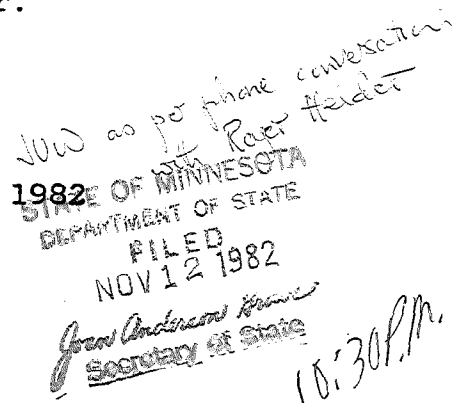 as per phone conversation
with Roger Heider
1982
STATE OF MINNESOTA
DEPARTMENT OF STATE
FILED
NOV 12 1982
Joan Anderson Growe
Secretary of State
10:30 P.M.